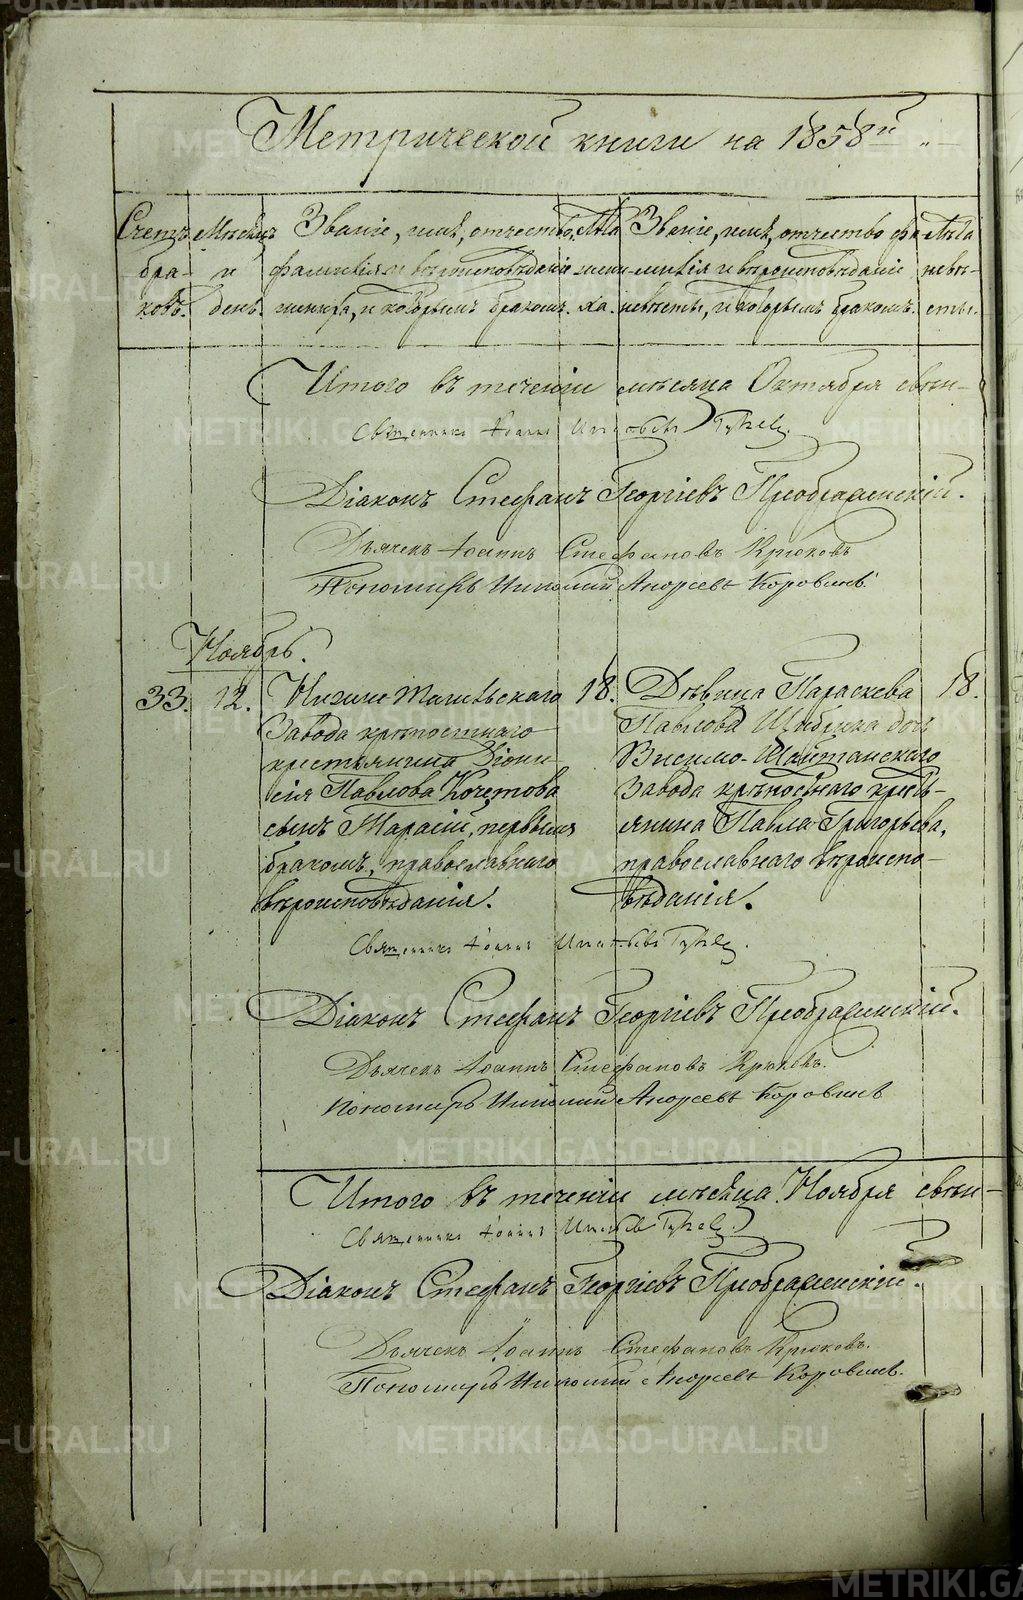 Метрической книги на 1858й
Счетъ браковъ. Мѣсяцъ и день. Званіе, имя, отчество, фамилія и вѣроисповѣданіе жениха, и которымъ бракомъ. Лѣта жениха. Званіе, имя, отчество фамилія и вѣроисповѣданіе невѣсты, и которымъ бракомъ. Лѣта невѣсты.
Итого въ теченіи мѣсяца Октября свѣн-
Священникъ Іоаннъ
Діаконъ Стефанъ Георгіевъ Преображенскій.
Дьячекъ Іоаннъ Стефановъ Крюковъ
Пономарь Николай Андреевъ Коровинъ.
Ноябрь.
33. 12.
Нижне Тагильскаго
Завода крѣпостнаго
крестьянина Діони-
сія Павлова Кочетова
сынъ Тарасій, первымъ
бракомъ, православнаго
вѣроисповѣданія.
18.
Дѣвица Параскева
Павлова дочь
Висимо-Шайтанскаго
Завода крѣпостнаго кресть-
янина Павла Григорьева,
православнаго вѣроиспо-
вѣданія.
18.
Священникъ Іоаннъ
Діаконъ Стефанъ Георгіевъ Преображенскій.
Дьячекъ Іоаннъ Стефановъ Крюковъ.
Пономарь Николай Андреевъ Коровинъ
Итого въ теченіи мѣсяца Ноября свѣн-
Священникъ Іоаннъ
Діаконъ Стефанъ Георгіевъ Преображенскій.
Дьячекъ Іоаннъ Стефановъ Крюковъ.
Пономарь Николай Андреевъ Коровинъ.
METRIKI.GASO-URAL.RU